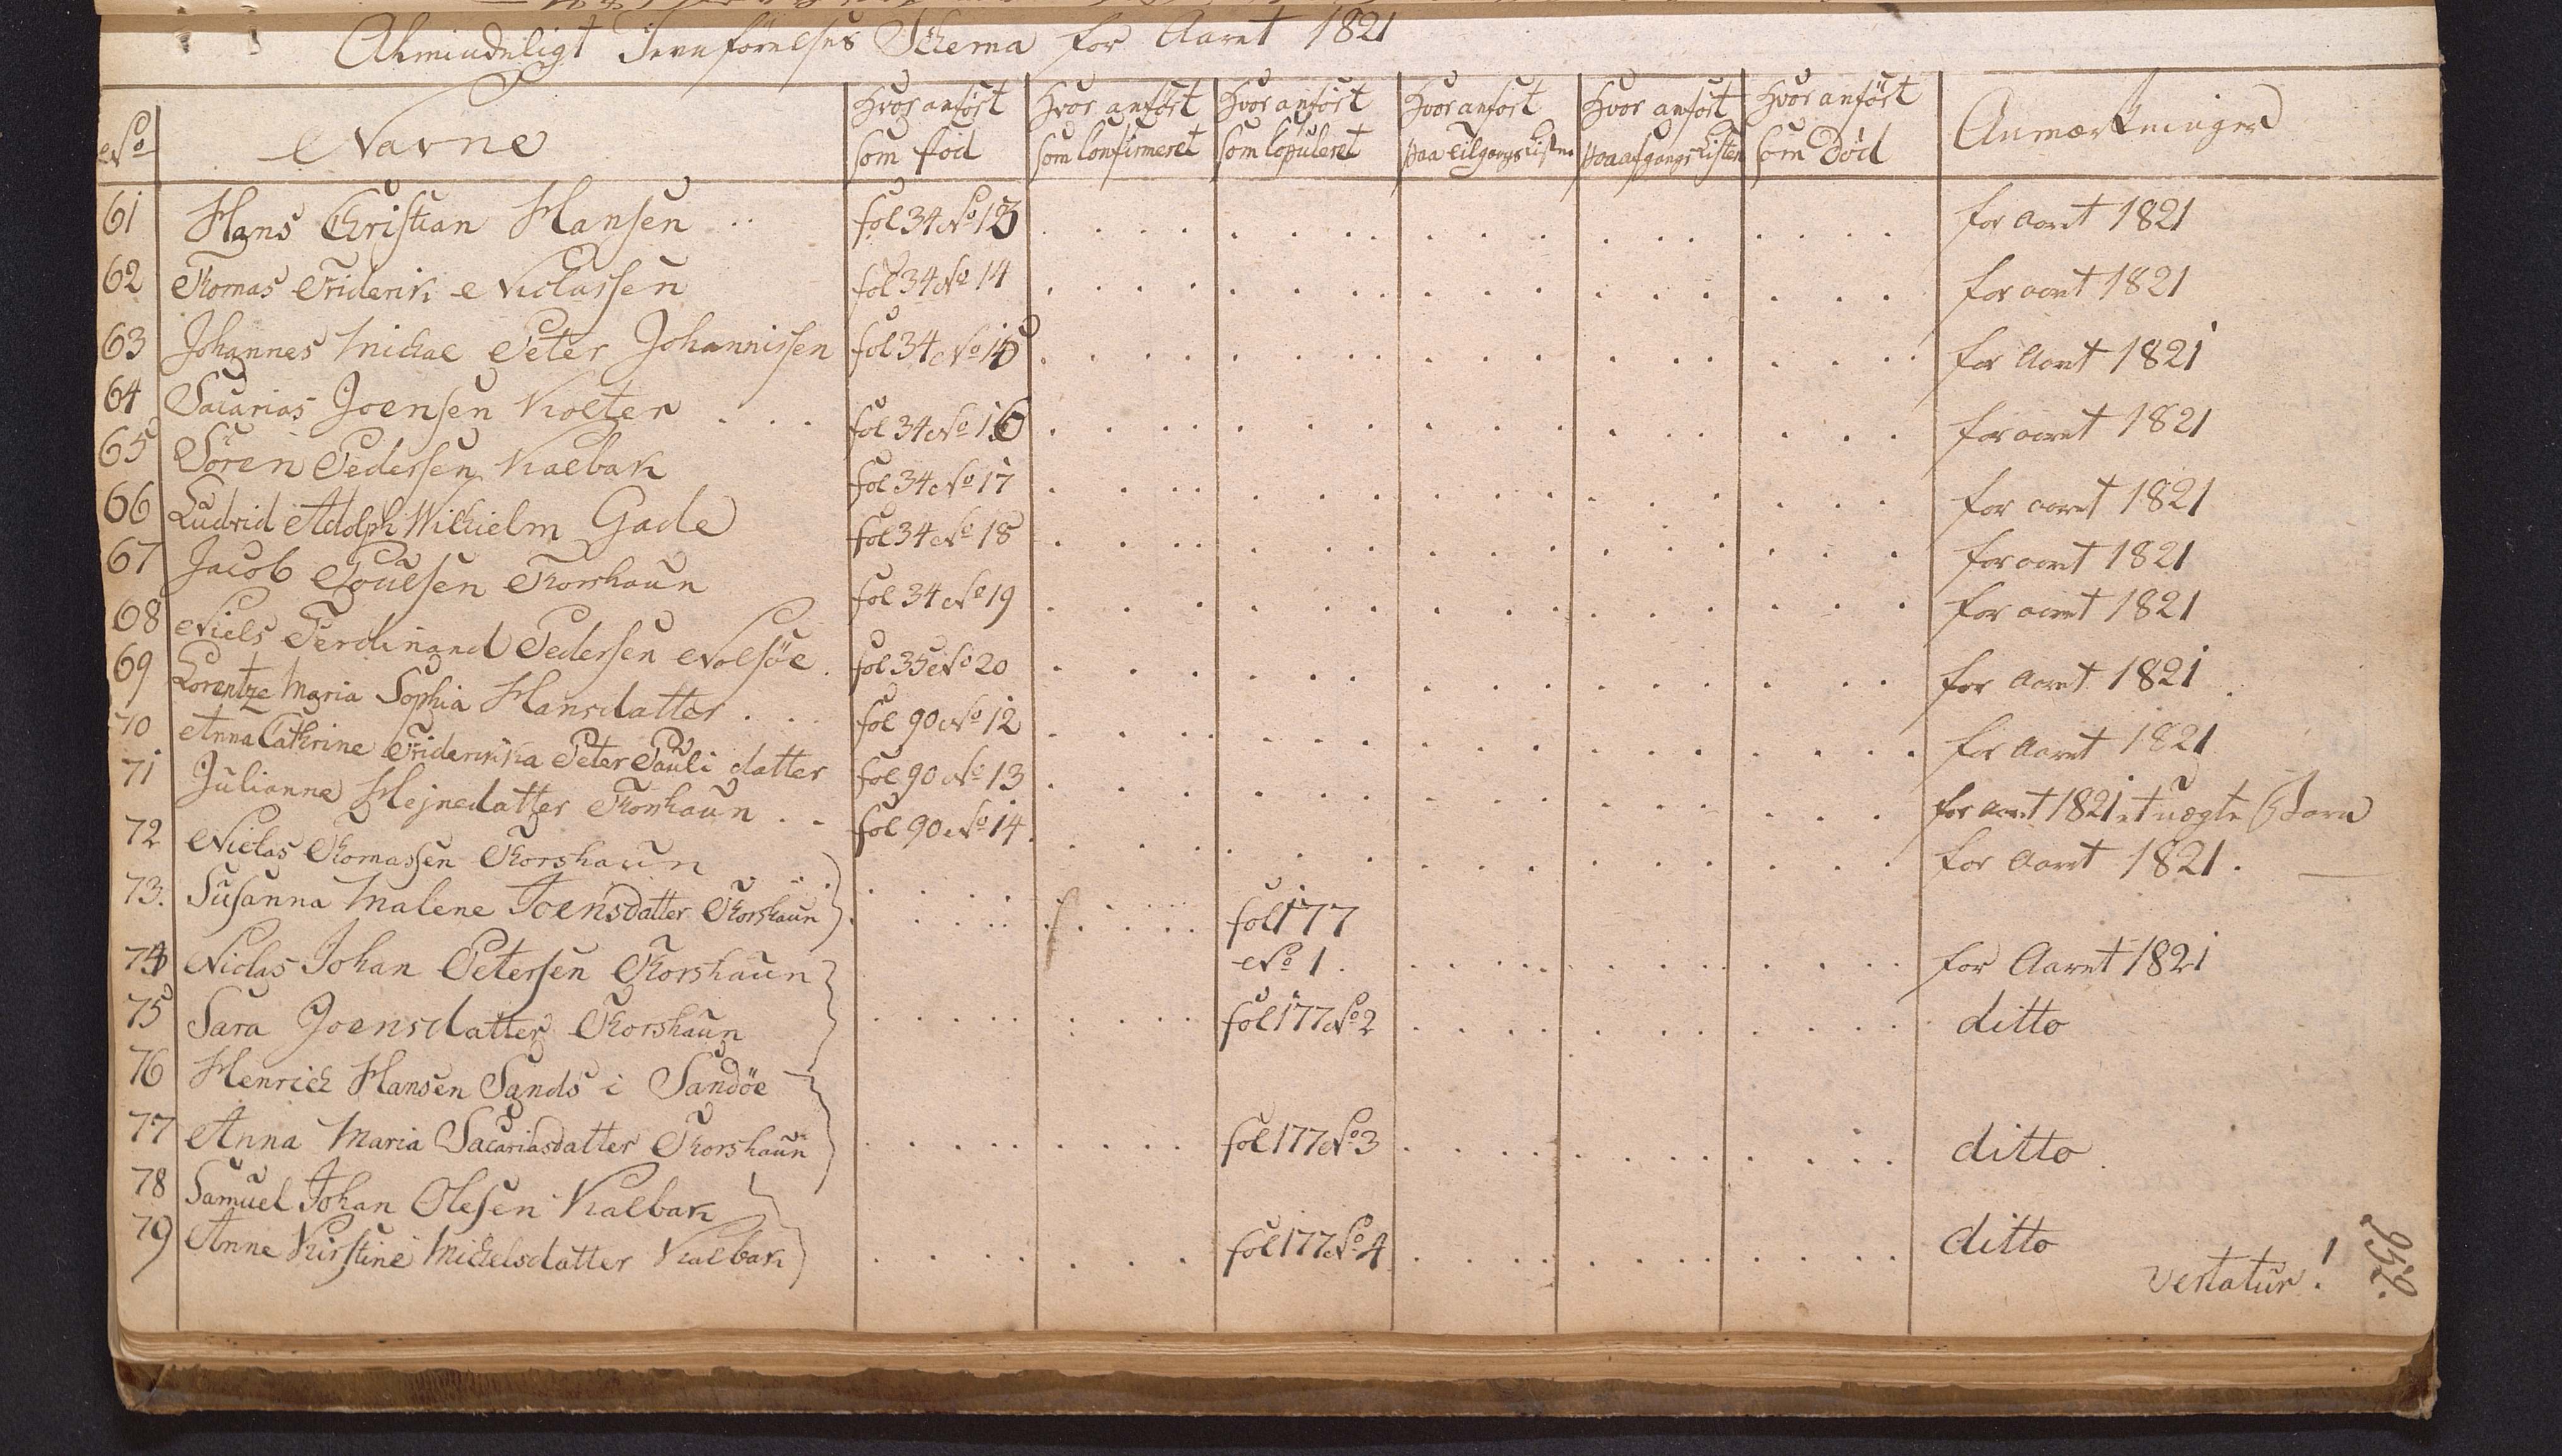 Almindeligt Jevnførelses Schema for Aaret 1821
No Navne Hvor anført som fød Hvor anført som confirmeret Hvor anført som copuleret Hvor anført paa Tilgangs Listen Hvor anført paa afgangs Listen Hvor anført som Død Anmærkninger
61 Hans Christian Hansen .. fol 34 No 13 for Aaret 1821
62 Thomas Friderik Niclassen fol 34 No 14 for aaret 1821
63 Johannes Michae Peter Johannissen fol 34 No 15 for Aaret 1821
64 Sacarias Joensen Kolter . . . fol 34 No 16 for aaret 1821
65 Sören Pedersen Kalbak fol 34 No 17 for aaret 1821
66 Ludvid Adolph Wilhielm Gade fol 34 No 18 for aaret 1821
67 Jacob Poulsen Thorshaun fol 34 No 19 for aaret 1821
68 Niels Ferdinand Pedersen Nolsöe . fol 35 No 20 for Aaret 1821
69 Lorentze Maria Sophia Hansdatter . . . fol 90 No 12 for Aaret 1821
70 Anna Cathrine Friderikka Peter Pauli datter fol 90 No 13 for Aaret 1821 et uægte Barn
71 Julianna Hejnedatter Thorshaun . . fol 90 No 14 for Aaret 1821.
72 Niclas Thomassen Thorshaun
73. Susanna Malene Joensdatter Thorshaun fol 177 No 1. for Aaret 1821
74 Niclas Johan Petersen Thorshaun
75 Sara Joensdatter Thorshaun fol 177 No 2 ditto
76 Henrich Hansen Sands i Sandöe
77 Anna Maria Sacariasdatter Thorshaun fol 177 No 3 ditto
78 Samuel Johan Olesen Kalbak
79 Anne Kirstine Michelsdatter Kalbak fol 177 No 4 ditto
vertatur!
252.